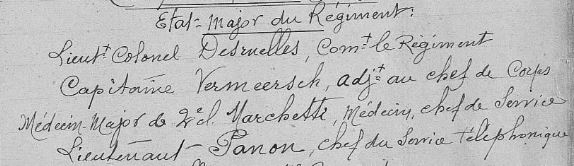 Etat-Major du Régiment.
Lieut.t Colonel Desruelles, Com.t le Régiment
Capitaine Vermeersch, adj.t au chef de Corps
Médecin-Major de 2e cl. Marchette, Médecin, chef de Service
Lieutenant Panon, chef du Service téléphonique